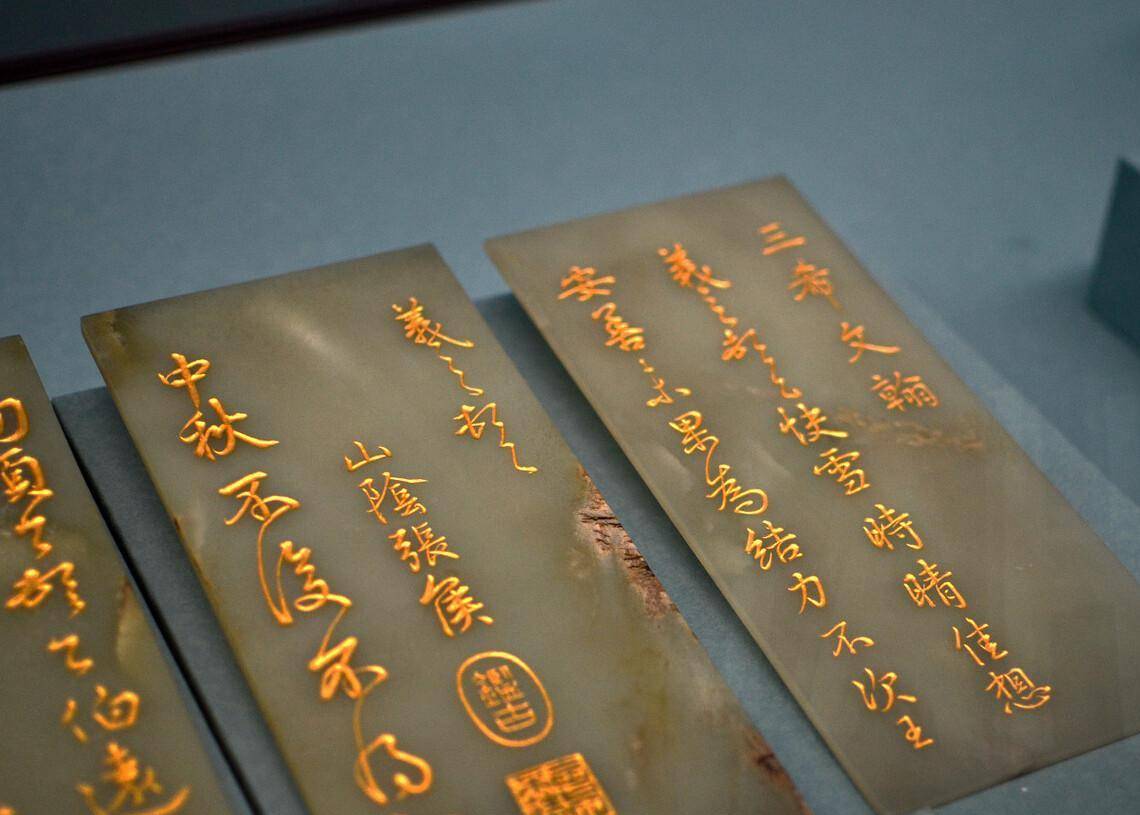 三希文翰
羲之頓首快雪時晴佳想
安善未果為結力不次王
羲之頓首
山陰張侯
中秋不復不得
頓首頓首伯遠